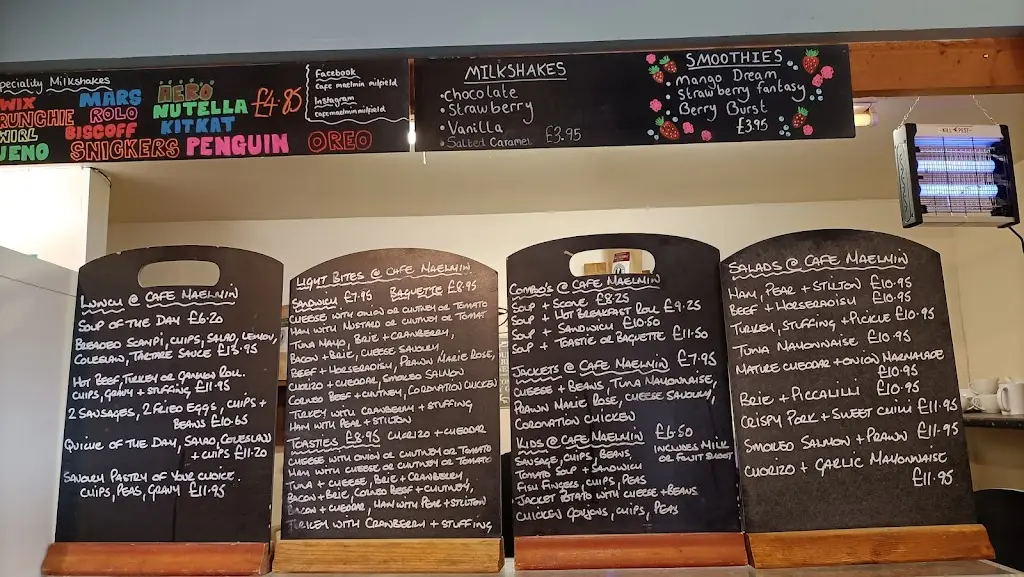 Speciality Milkshakes
WIX MARS AERO
RUNCHIE ROLO NUTELLA £4.85
WIRL BISCOFF KITKAT
UENO SNICKERS PENGUIN OREO
Facebook
cafe maelmin milfield
Instagram
cafemaelminmilfield
MILKSHAKES
• chocolate
• Strawberry
• Vanilla
• Salted Caramel £3.95
SMOOTHIES
mango Dream
strawberry fantasy
Berry Burst
£3.95
KILL PEST
LUNCH @ CAFE MAELMIN
SOUP OF THE DAY £6.20
BREADED SCAMPI, CHIPS, SALAD, LEMON,
COLESLAW, TARTARE SAUCE £13.95
HOT BEEF, TURKEY OR GAMMON ROLL.
CHIPS, GRAVY + STUFFING £11.95
2 SAUSAGES, 2 FRIED EGGS, CHIPS +
BEANS £10.65
QUICHE OF THE DAY, SALAD, COLESLAW
+ CHIPS £11.20
SAVOURY PASTRY OF YOUR CHOICE.
CHIPS, PEAS, GRAVY £11.95
LIGHT BITES @ CAFE MAELMIN
SANDWICH £7.95 BAGUETTE £8.95
CHEESE WITH ONION OR CHUTNEY OR TOMATO
HAM WITH MUSTARD OR CHUTNEY OR TOMATO
TUNA MAYO, BRIE + CRANBERRY,
BACON + BRIE, CHEESE SAVOURY
BEEF + HORSERADISH, PRAWN MARIE ROSE,
CHORIZO + CHEDDAR, SMOKED SALMON
CORNED BEEF + CHUTNEY, CORONATION CHICKEN
TURKEY WITH CRANBERRY + STUFFING
HAM WITH PEAR + STILTON
TOASTIES £8.95 CHORIZO + CHEDDAR
CHEESE WITH ONION OR CHUTNEY OR TOMATO
HAM WITH CHEESE OR CHUTNEY OR TOMATO
TUNA + CHEESE, BRIE + CRANBERRY,
BACON + BRIE, CORNED BEEF + CHUTNEY,
BACON + CHEDDAR, HAM WITH PEAR + STILTON
TURKEY WITH CRANBERRY + STUFFING
COMBO'S @ CAFE MAELMIN
SOUP + SCONE £8.25
SOUP + HOT BREAKFAST ROLL £9.25
SOUP + SANDWICH £10.50
SOUP + TOASTIE OR BAGUETTE £11.50
JACKETS @ CAFE MAELMIN £7.95
CHEESE + BEANS, TUNA MAYONNAISE,
PRAWN MARIE ROSE, CHEESE SAVOURY,
CORONATION CHICKEN
KIDS @ CAFE MAELMIN £6.50
SAUSAGE, CHIPS, BEANS INCLUDES MILK
TOMATO SOUP + SANDWICH OR FRUIT SHOOT
FISH FINGERS, CHIPS, PEAS
JACKET POTATO WITH CHEESE + BEANS
CHICKEN GOUJONS, CHIPS, PEAS
SALADS @ CAFE MAELMIN
HAM, PEAR + STILTON £10.95
BEEF + HORSERADISH £10.95
TURKEY, STUFFING + PICKLE £10.95
TUNA MAYONNAISE £10.95
MATURE CHEDDAR + ONION MARMALADE
£10.95
BRIE + PICCALILLI £10.95
CRISPY PORK + SWEET CHILLI £11.95
SMOKED SALMON + PRAWN £11.95
CHORIZO + GARLIC MAYONNAISE
£11.95